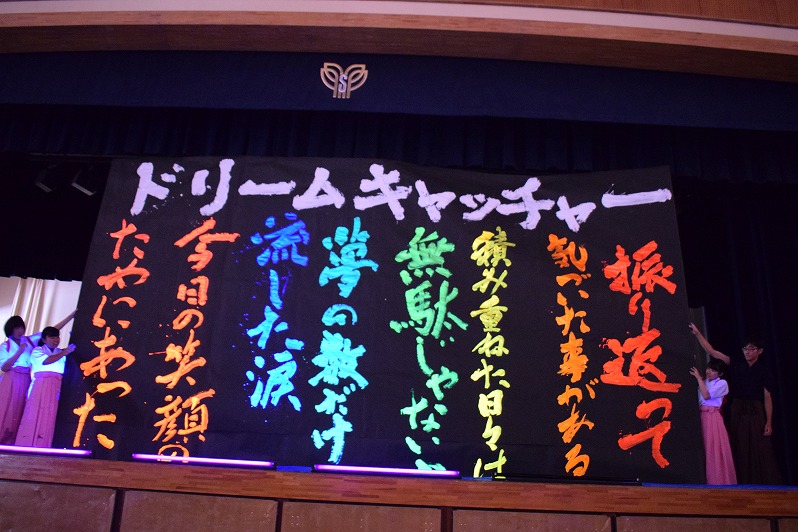 ドリームキャッチャー
振り返って
気づいた事がある
積み重ねた日々は
無駄じゃない
夢の数だけ
流した涙
今日の笑顔の
たやにあった
S